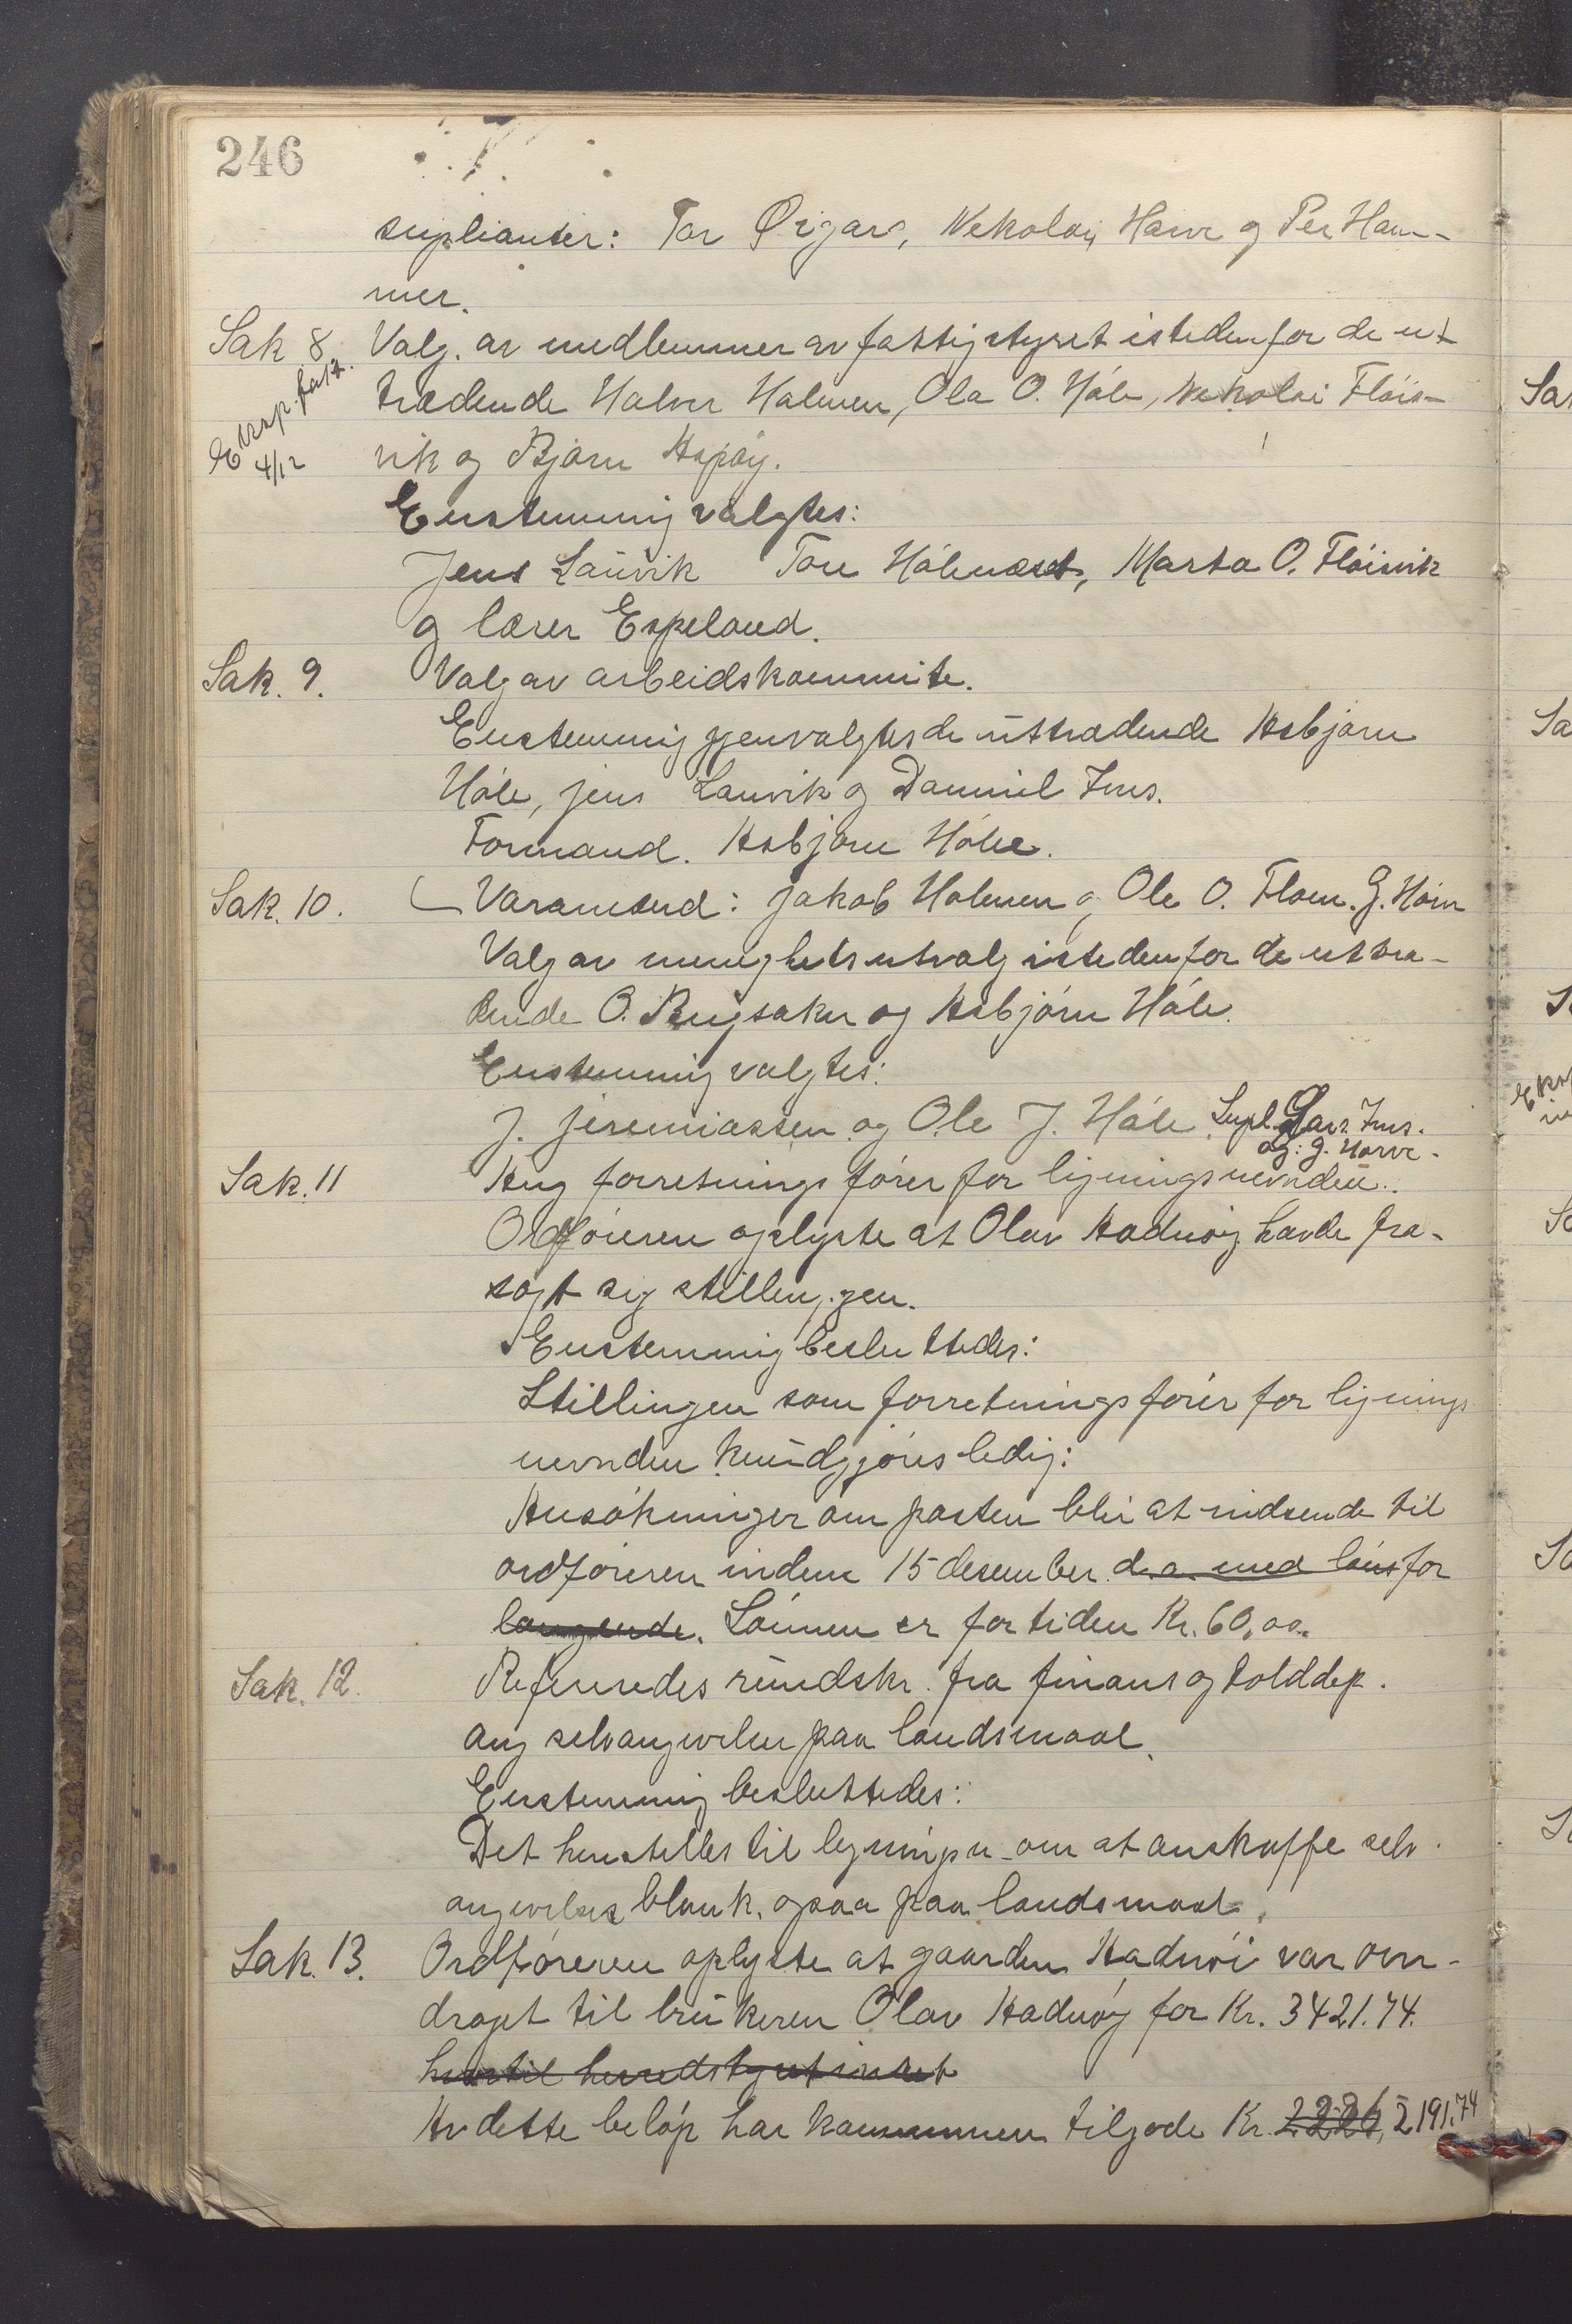 246
suplianter: Tor Ørgars, Nekolai Harve og Per Ham-
mer.
Sak 8 Valg. av medlemmer av fattigstyret istedenfor de ut
trædende Halvor Halmen, Ola O. Håle, Nekolai Fløis-
vik og Bjørn Aspøy.
Eksp. fatt.
4/12
Enstemmig valgtes:
Jens Lauvik Tore Hålenæset, Marta O. Fløisvik
og lærer Espeland.
Sak. 9. Valg av arbeidskommite.
Enstemmig gjenvalgtes de uttrædende Asbjørn
Håle, Jens Lauvik og Danniel Ims.
Formand. Asbjørn Håle.
Varamænd: Jakob Holmen og Ole O. Flom. G. Horve
Sak. 10. Valg av menighetsutvalg istedenfor de uttræ-
dende O. Ringsaker og Asbjørn Håle.
Enstemmig valgtes:
J. Jeremiassen og Ole J. Håle Supl. Lars Ims.
og: G. Horve.
Sak. 11 Ang forretningsfører for ligningsnevnden.
Ordføreren oplyste at Olav Hadnøy havde fra-
sagt sig stillingen.
Enstemmig besluttedes:
Stillingen som forretningsfører for lignings
nevnden kundgjøres ledig:
Ansøkninger om posten blir at indsende til
ordføreren inden 15 desember d.a. med løns for
langende. Lønnen er for tiden Kr. 60,00.
Sak. 12. Refereredes rundskr. fra finans og tolddep.
ang selvangivelser paa landsmaal.
Enstemmig besluttedes:
Det henstilles til ligningsn. om at anskaffe selv
angivelses blank. ogsaa paa landsmaal.
Sak. 13. Ordføreren oplyste at gaarden Hadnøi var over-
draget til brukeren Olav Hadnøy for Kr. 3421.74.
hvortil herredstyret intet
Av dette beløp har kommunen tilgode Kr. 2226, 2191.74